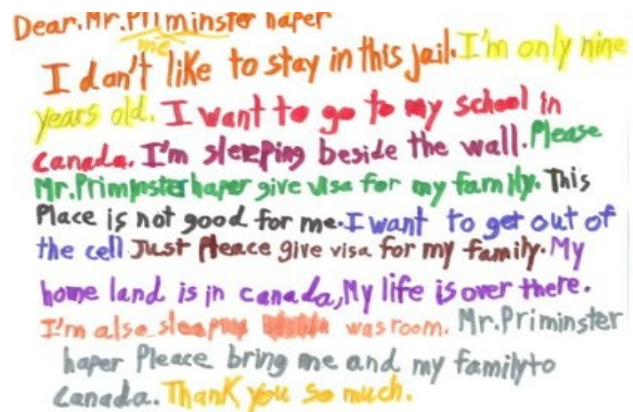 Dear.Mr.Priminster haper
me
I don't like to stay in this jail.I'm only nine
years old. I want to go to my school in
canada. I'm sleeping beside the wall. Please
Mr.Priminster haper give visa for my family. This
Place is not good for me.I want to get out of
the cell Just Pleace give visa for my family. My
home land is in canada,My life is over there.
I'm also sleeping was room. Mr.Priminster
haper Pleace bring me and my family to
canada. Thank you so much.